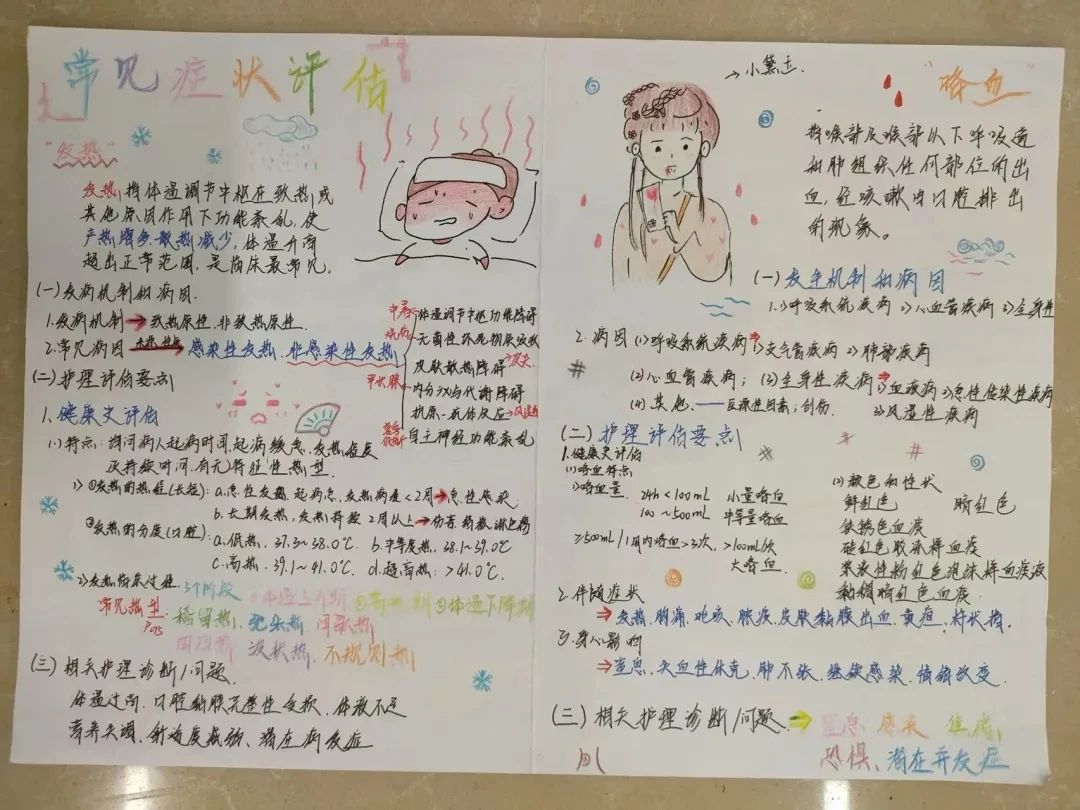 常见症状评估
"发热"
发热,指体温调节中枢在致热,或
其他原因作用下功能紊乱,使
产热增多,散热减少,体温升高
超出正常范围,是临床最常见。
(一)发病机制和病因.
1.发病机制→致热原性.非致热原性.
2.常见病因 感染性发热.非感染性发热
中暑 体温调节中枢功能障碍
烧伤 无菌性坏死物质吸收
皮肤散热障碍
甲状腺 内分泌与代谢障碍
抗原-抗体反应→风湿热
自主神经功能紊乱
(二)护理评估要点
1.健康史评估
(1)特点:询问病人起病时间,起病缓急,发热程度
及持续时间,有无特征性热型
2)①发热的热程(长短):a.急性发热,起病急,发热病程<2周→急性感染.
b.长期发热,发热持续2周以上→伤寒
②发热的分度(口腔):a.低热,37.3~38.0℃. b.中等度热,38.1~39.0℃
c.高热.39.1~41.0℃. d.超高热:>41.0℃.
3)发热临床过程.3个阶段 ①体温上升期 ②高热期 ③体温下降期
常见热型: 稽留热、弛张热 间歇热
P25
回归热 波状热.不规则热
(三)相关护理诊断/问题.
体温过高.口腔黏膜完整性受损.体液不足
营养失调.潜在并发症
→小黛玉.
"咯血"
指喉部及喉部以下呼吸道
和肺组织任何部位的出
血,经咳嗽由口腔排出
的现象。
(一)发生机制和病因
1.1)呼吸系统疾病 2)心血管疾病 3)全身性
2.病因 (1)呼吸系统疾病→1)支气管疾病 2)肺部疾病
(2)心血管疾病;(3)全身性疾病→1)血液病 2)急性传染性疾病
(4)其他.——医源性因素;创伤. 3)风湿性疾病
(二)护理评估要点
1.健康史评估
(1)咯血特点
1)咯血量. 24h<100mL 小量咯血
100~500mL 中等量咯血
≥500mL/1周内咯血>3次,>100mL/次
大咯血.
(2)颜色和性状
鲜红色 暗红色
铁锈色血痰
砖红色胶冻样血痰
浆液性粉红色泡沫样血痰液
黏稠暗红色血痰.
2.伴随症状
→发热.胸痛.呛咳.脓痰.皮肤黏膜出血.黄疸.杵状指.
3.身心影响
→窒息.失血性休克.肺不张.继续感染.情绪改变.
(三)相关护理诊断/问题→窒息.感染 焦虑,
恐惧、潜在并发症